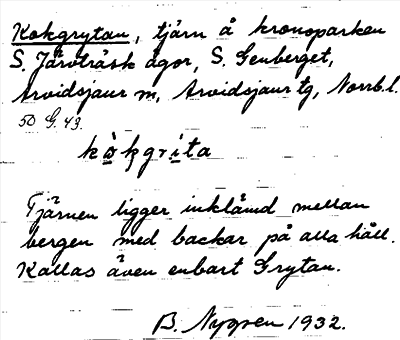 Kokgrytan, tjärn å kronoparken
S. Järvträsk ägor, S. Genberget,
Arvidsjaur sn, Arvidsjaur tg, Norrb. l.
50 G. 43.
kòkgrita
Tjärnen ligger inklämd mellan
bergen med backar på alla håll.
Kallas även enbart Grytan.
B. Nygren 1932.